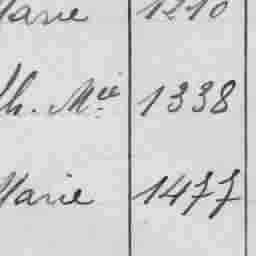 Marie 1210
Th. Mie 1338
Marie 1477